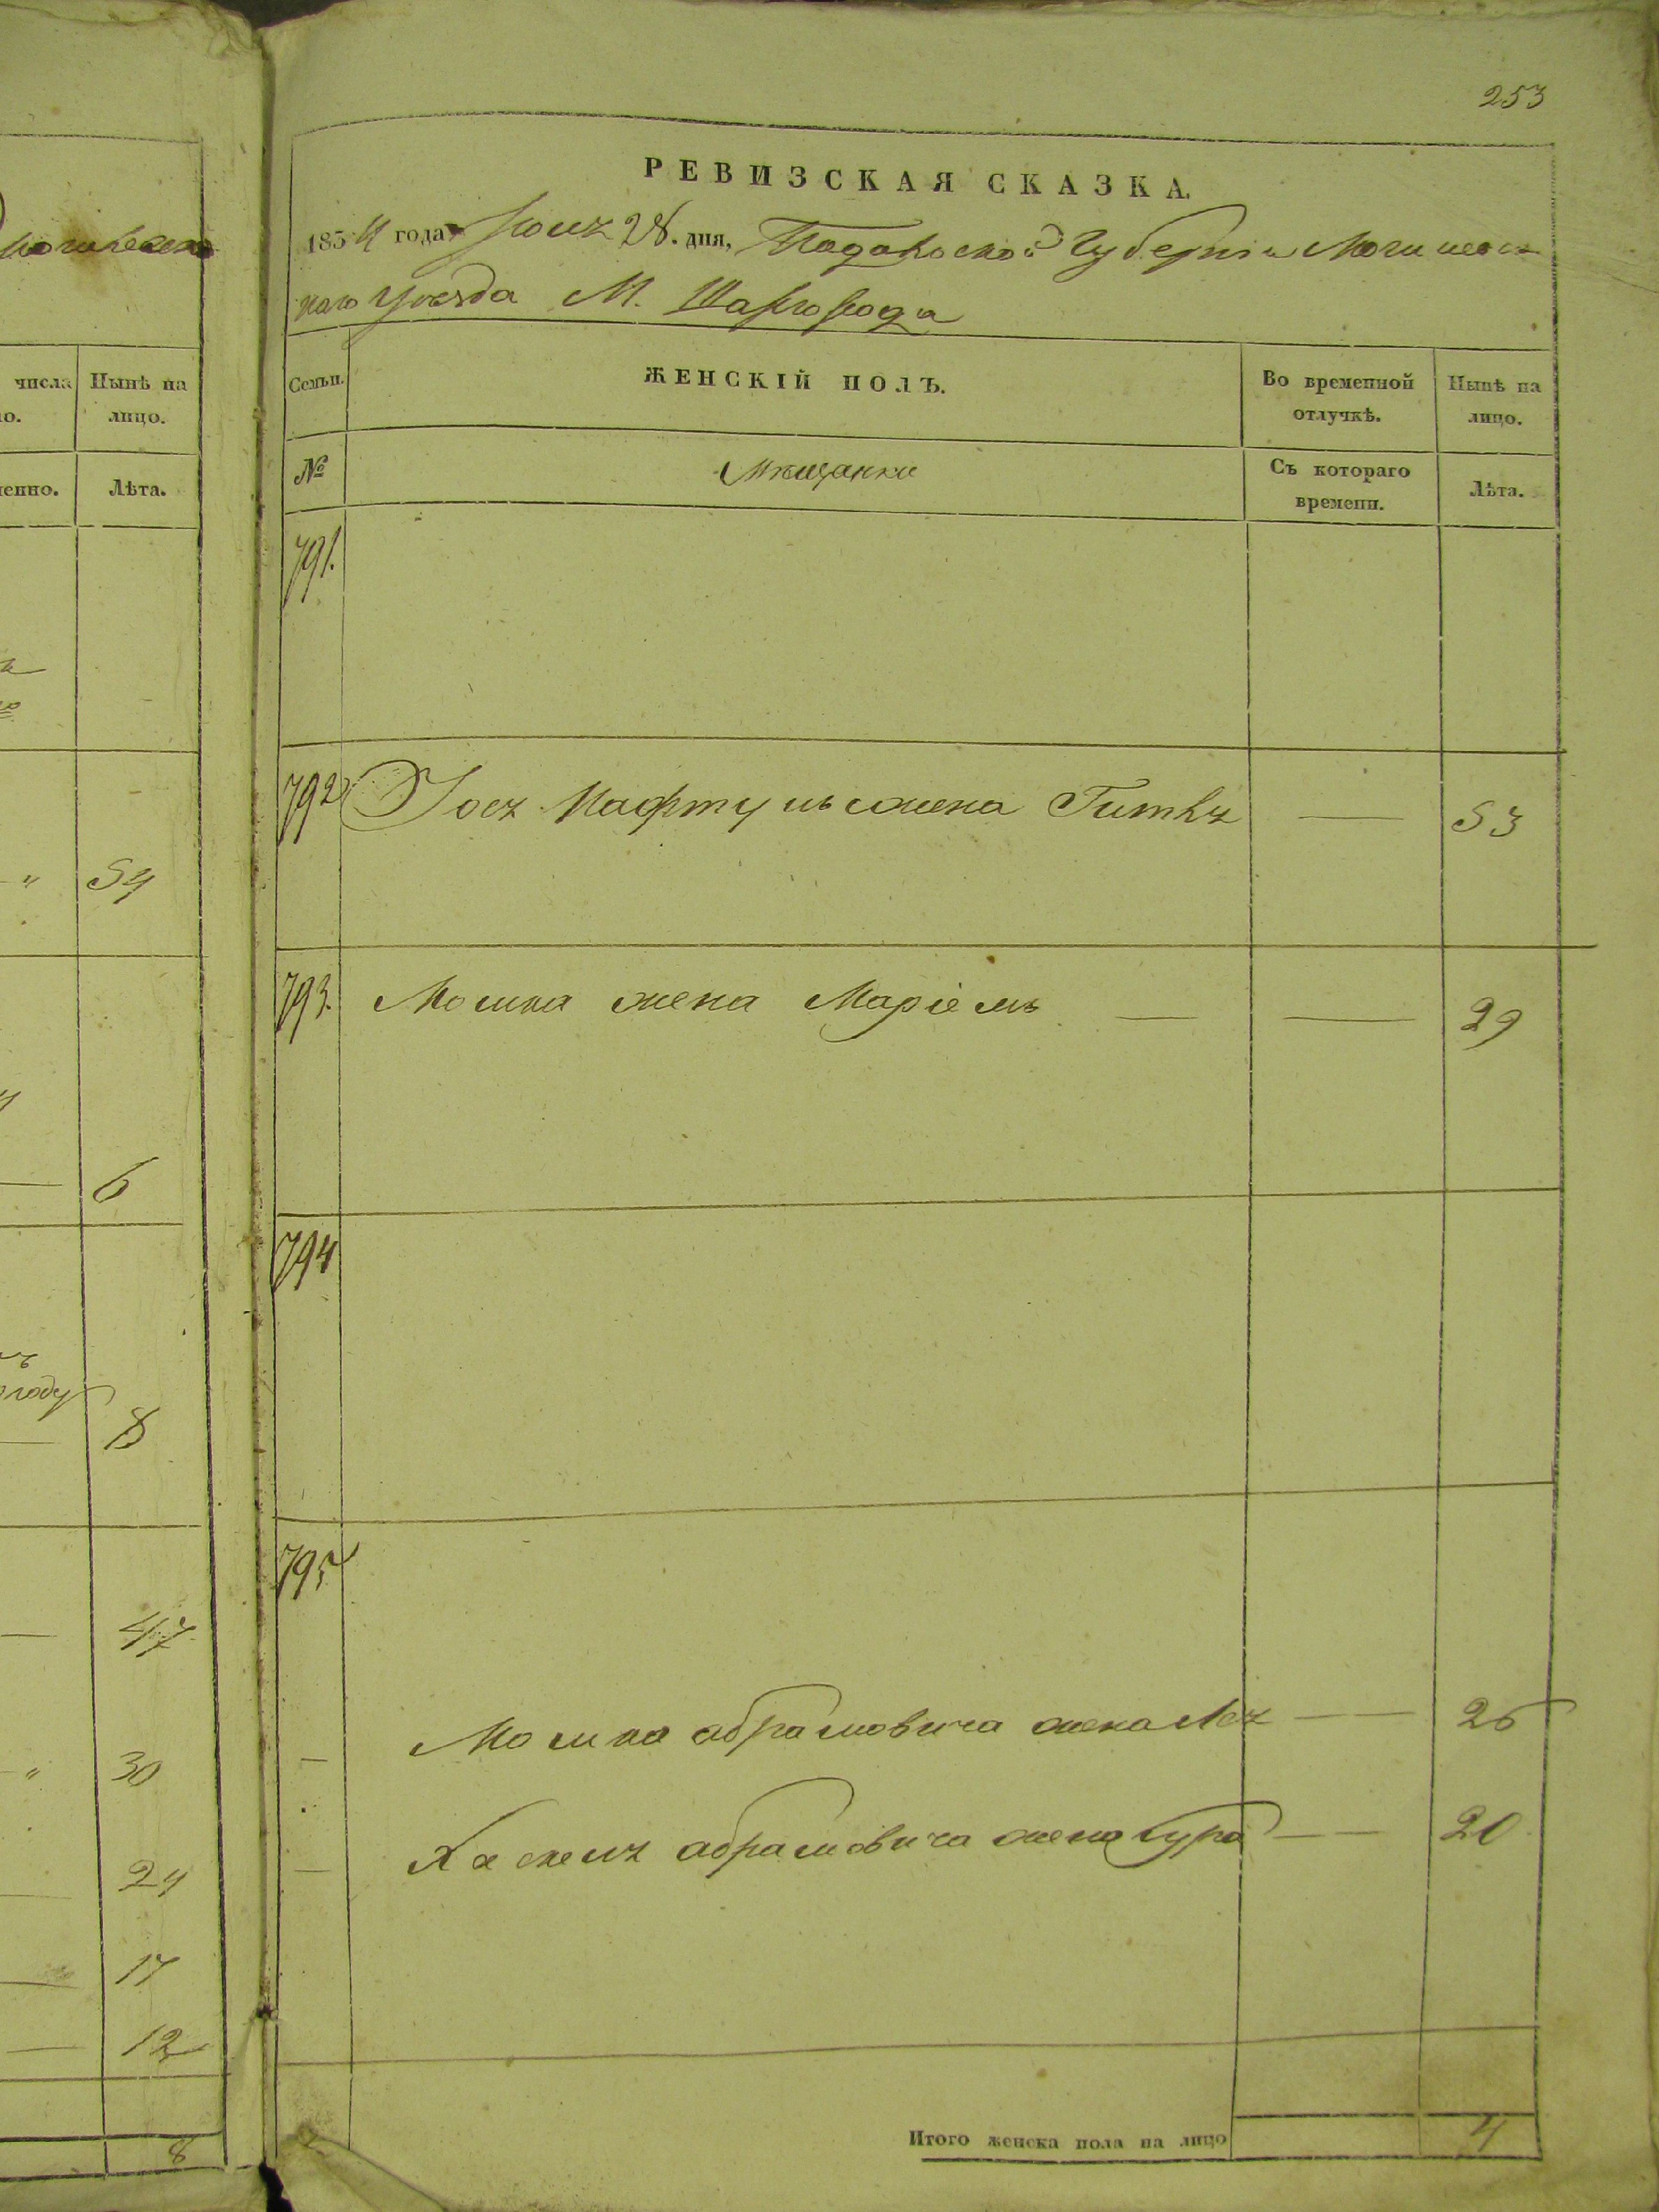 253
РЕВИЗСКАЯ СКАЗКА.
1854 года Июля 28. дня, Подольской Губернiи Могилевск
каго Уѣзда М. Шаргорода
числа Нынѣ на
лицо.
Семьи. ЖЕНСКІЙ ПОЛЪ. Во временной Нынѣ на
отлучкѣ. лицо.
№ Мѣщанки Съ котораго Лѣта.
времени.
Лѣта.
791.
792 Iось Нафтуль жена Гитля — 53
" 54
793. Мошка жена Марiемъ — — 29
6
794
году
8
795
47
— Мошка Абрамовича жена Лея — 26
" 30
— Хаскель Абрамовича жена Сура — 20
24
17
12
Итого женска пола на лицо 4
8